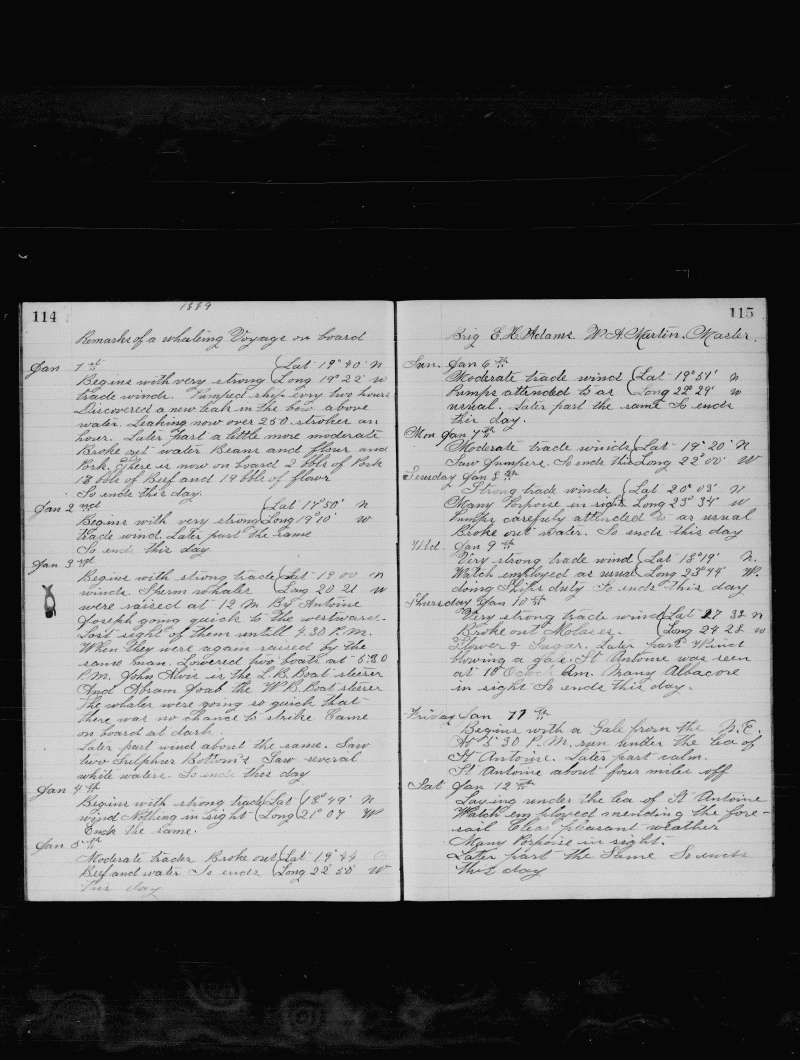 114
1889
Remarks of a whaleing Voyage on board
Jan 1st
Lat 19° 40' N
Begins with very strong Long 19° 22' W
trade winds. Pumped ship evry two hours
Discovered a new leak in the bow above
water. Leaking now over 250 strokes an
hour. Later Part a little more moderate
Broke out water Beans and flour and
Pork. There is now on board 2 bbls of Pork
13 bbls of Beef and 19 bbls of flour
So ends this day.
Jan 2nd
Lat 17° 50' N
Begins with very strong Long 19° 10' W
trade wind. Later part the same
So ends this day
Jan 3rd
Begins with strong trade Lat 19 00 N
winds Sperm whales Long 20 21 W
were raised at 12 M By Antoine
Joseph going quick to the westward.
Lost sight of them untill 4.30 P.M.
When they were again raised by the
same man. Lowered two boats at 5.30
P.M. John Alvis is the L.B. Boat steerer
And Abram Joab the W.B. Boat steerer
The whales were going so quick that
there was no chance to strike Came
on board at dark.
Later part wind about the same. Saw
two Sulphur Bottom's Saw several
white waters. So ends this day
Jan 4th
Begins with strong trade Lat 18° 49' N
wind Nothing in sight Long 21° 07 W
Ends the same.
Jan 5th
Moderate trades Broke out Lat 19° 44
Beef and water So ends Long 22° 50' W
this day
115
Brig E. H. Adams. W. A. Martin. Master.
Sun. Jan 6th
Moderate trade wind Lat 19° 51' N
Pumps attended to as Long 22° 29' W
usual. Later part the same So ends
this day.
Mon Jan 7th
Moderate trade winds Lat 19° 20' N
Saw Jumpers. So ends this Long 22° 00' W
Teusday Jan 8th
Strong trade winds Lat 20° 03' N
Many Porpoise in sight Long 23° 34' W
Pumps carefuly attended to as usual
Broke out water. So ends this day
Wed. Jan 9th
Very strong trade wind Lat 18° 19' N.
Watch employed as usual Long 23° 44' W.
doing Ships duty So ends this day
Thursday Jan 10th
Very strong trade wind Lat 17 32 N
Broke out Molases. Long 24 23 W
Flower & Sugar. Later part Wind
blowing a gale. St Antoine was seen
at 10 Oclock Am. Many Albacore
in sight So ends this day.
Friday Jan 11th
Begins with a Gale from the N.E.
At 5 30 P.M. run under the lea of
St Antoine. Later part calm.
St Antoine about four miles off
Sat Jan 12th
Laying under the lea of St Antoine
Watch employed mending the fore-
sail Clear pleasant weather
Many Porpoise in sight.
Later part the Same So ends
this day